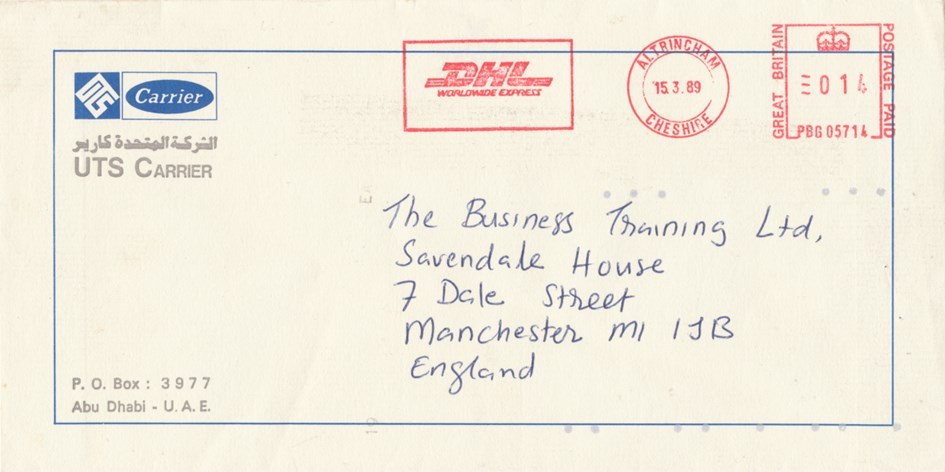 UTS Carrier
الشركة المتحدة كارير
UTS CARRIER
DHL
WORLDWIDE EXPRESS
ALTRINCHAM
15.3.89
CHESHIRE
GREAT BRITAIN
014
PBG 05714
POSTAGE PAID
The Business Training Ltd,
Savendale House
7 Dale Street
Manchester M1 1JB
England
P. O. Box : 3977
Abu Dhabi - U.A.E.